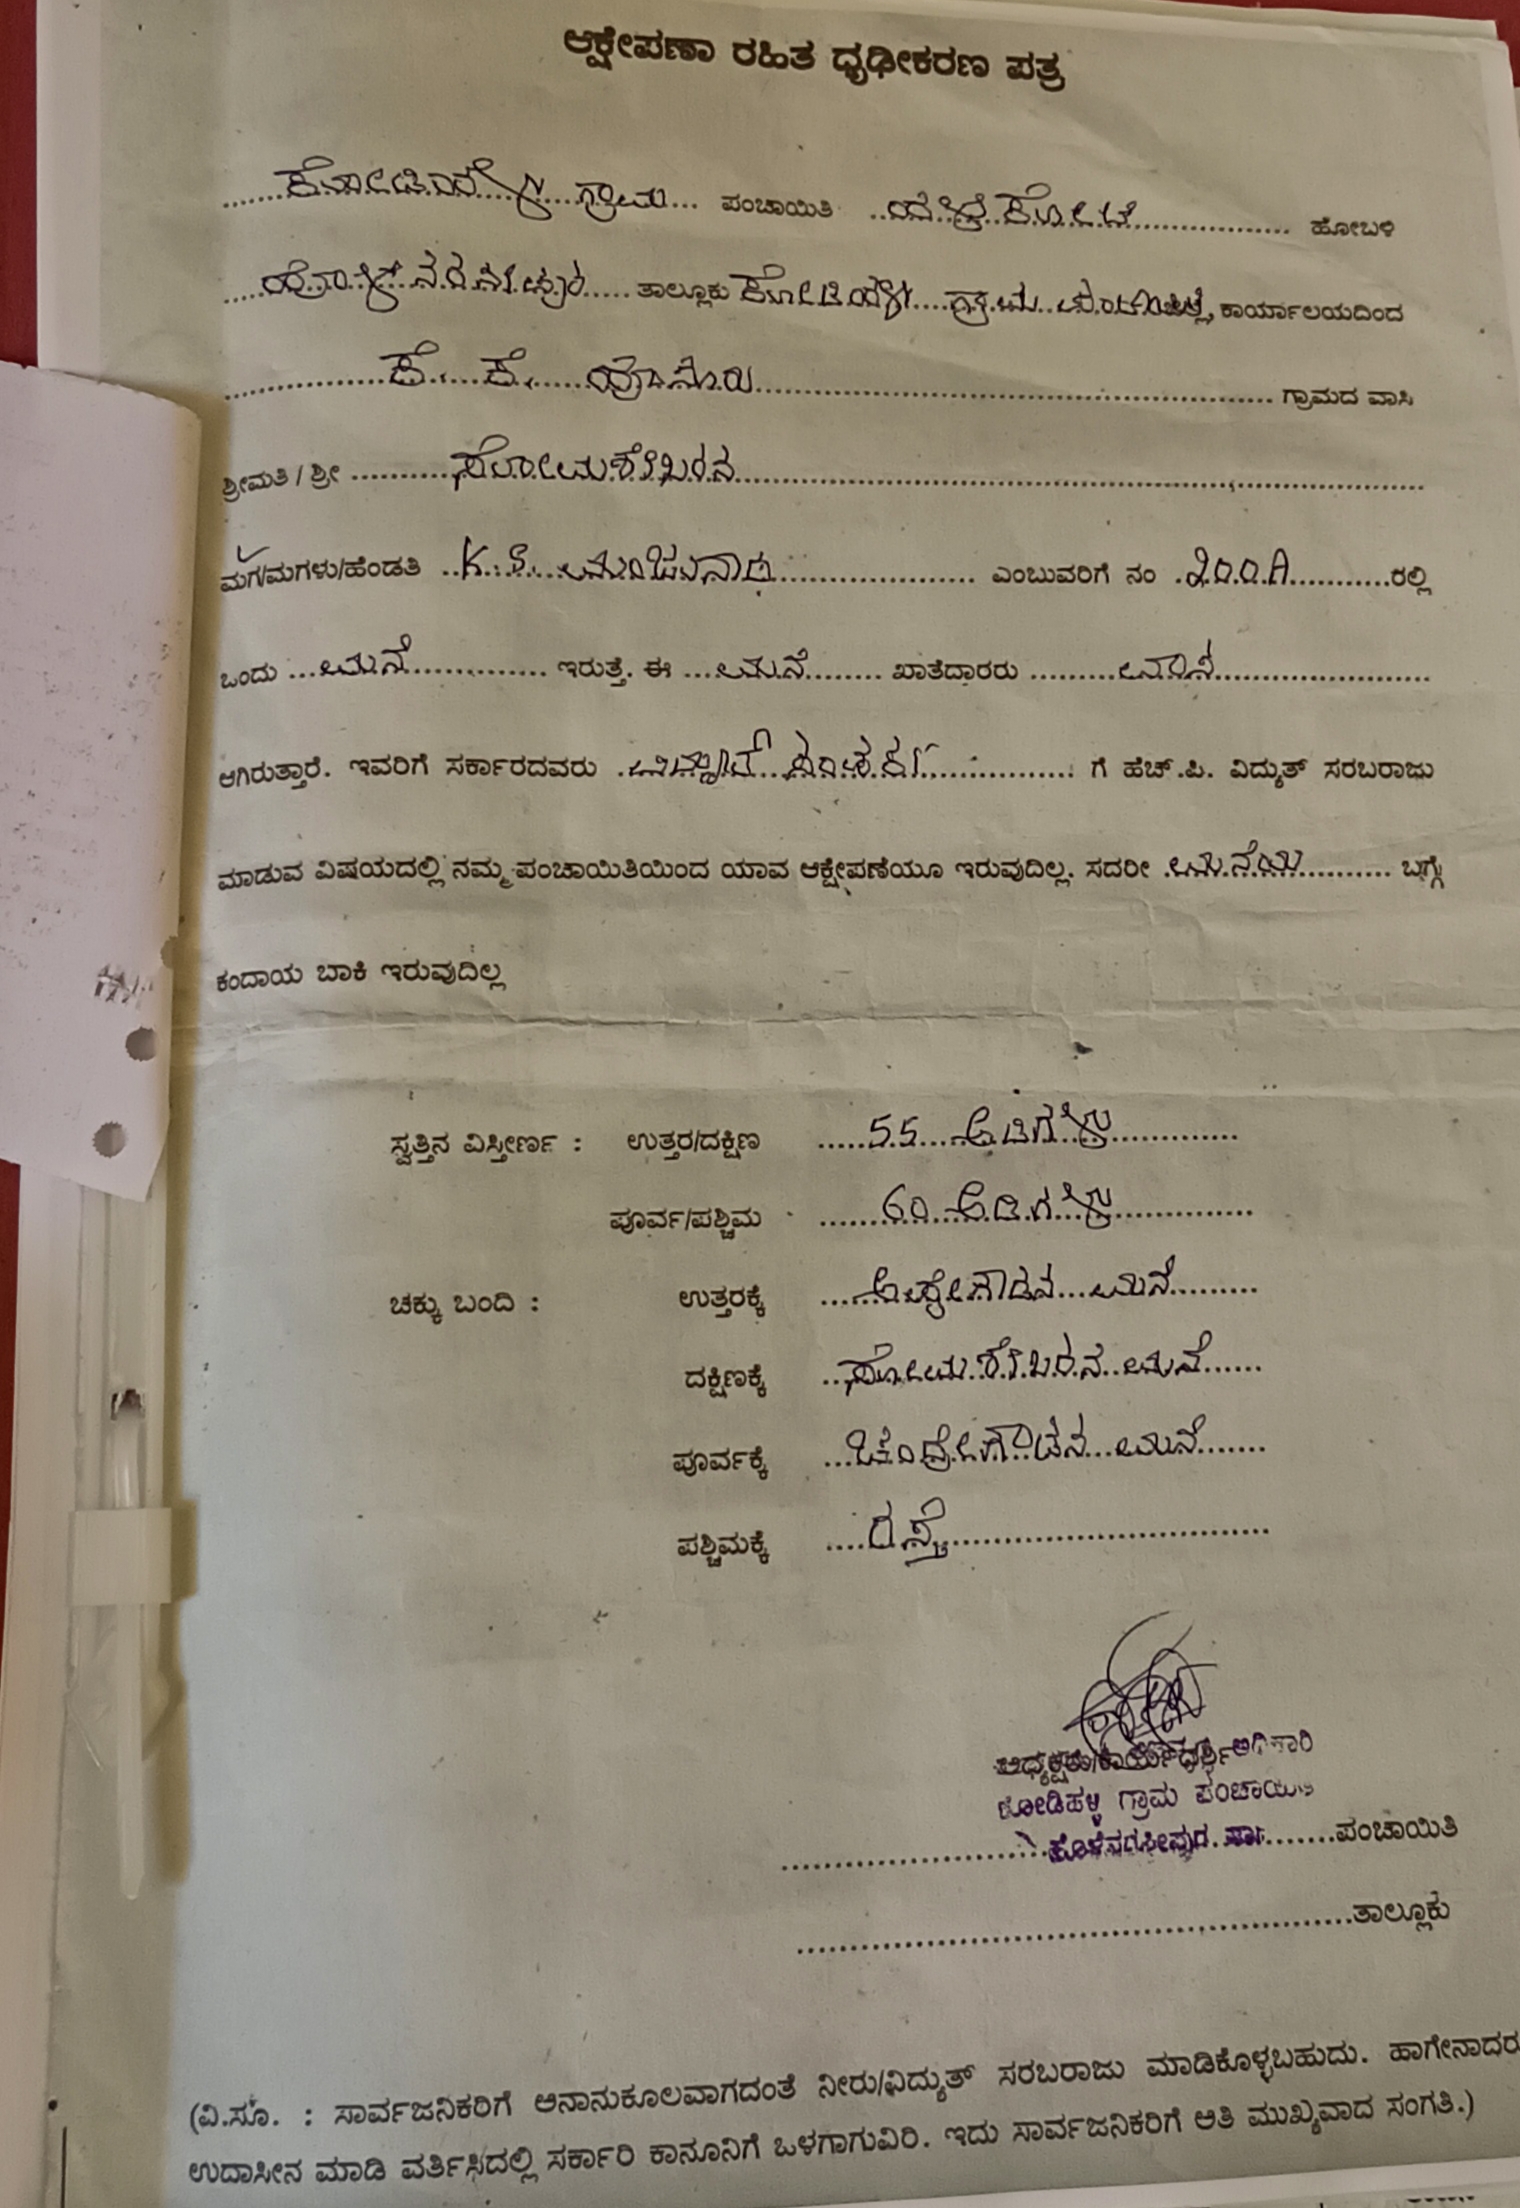 ಆಕ್ಷೇಪಣಾ ರಹಿತ ಧೃಢೀಕರಣ ಪತ್ರ
ಕೋಡಿಹಳ್ಳಿ ಗ್ರಾಮ ಪಂಚಾಯಿತಿ ಹಳೇಕೋಟೆ ಹೋಬಳಿ
ಹೊಳೆನರಸೀಪುರ ತಾಲ್ಲೂಕು ಕೋಡಿಹಳ್ಳಿ ಗ್ರಾಮ ಪಂಚಾಯಿತಿ, ಕಾರ್ಯಾಲಯದಿಂದ
ಕೆ. ಕೆ. ಹೊಸೂರು ಗ್ರಾಮದ ವಾಸಿ
ಶ್ರೀಮತಿ / ಶ್ರೀ ಸೋಮಶೇಖರನ
ಮಗ/ಮಗಳು/ಹೆಂಡತಿ K.S. ಮಂಜುನಾಥ ಎಂಬುವರಿಗೆ ನಂ 200A ರಲ್ಲಿ
ಒಂದು ಮನೆ ಇರುತ್ತೆ. ಈ ಮನೆ ಖಾತೆದಾರರು
ಆಗಿರುತ್ತಾರೆ. ಇವರಿಗೆ ಸರ್ಕಾರದವರು ವಿದ್ಯುತ್ ಸಂಪರ್ಕ ಗೆ ಹೆಚ್.ಪಿ. ವಿದ್ಯುತ್ ಸರಬರಾಜು
ಮಾಡುವ ವಿಷಯದಲ್ಲಿ ನಮ್ಮ ಪಂಚಾಯಿತಿಯಿಂದ ಯಾವ ಆಕ್ಷೇಪಣೆಯೂ ಇರುವುದಿಲ್ಲ. ಸದರೀ ಮನೆಯ ಬಗ್ಗೆ
ಕಂದಾಯ ಬಾಕಿ ಇರುವುದಿಲ್ಲ
ಸ್ವತ್ತಿನ ವಿಸ್ತೀರ್ಣ : ಉತ್ತರ/ದಕ್ಷಿಣ 55 ಅಡಿಗಳು
ಪೂರ್ವ/ಪಶ್ಚಿಮ 60 ಅಡಿಗಳು
ಚಕ್ಕು ಬಂದಿ : ಉತ್ತರಕ್ಕೆ ಮನೆ
ದಕ್ಷಿಣಕ್ಕೆ ಸೋಮಶೇಖರನ ಮನೆ
ಪೂರ್ವಕ್ಕೆ ಚಂದ್ರೇಗೌಡನ ಮನೆ
ಪಶ್ಚಿಮಕ್ಕೆ ರಸ್ತೆ
ಅಧ್ಯಕ್ಷರು/ಕಾರ್ಯದರ್ಶಿ ಅಧಿಕಾರಿ
ಕೋಡಿಹಳ್ಳಿ ಗ್ರಾಮ ಪಂಚಾಯಿತಿ
ಹೊಳೆನರಸೀಪುರ ತಾ. ಪಂಚಾಯಿತಿ
ತಾಲ್ಲೂಕು
(ವಿ.ಸೂ. : ಸಾರ್ವಜನಿಕರಿಗೆ ಅನಾನುಕೂಲವಾಗದಂತೆ ನೀರು/ವಿದ್ಯುತ್ ಸರಬರಾಜು ಮಾಡಿಕೊಳ್ಳಬಹುದು. ಹಾಗೇನಾದರು
ಉದಾಸೀನ ಮಾಡಿ ವರ್ತಿಸಿದಲ್ಲಿ ಸರ್ಕಾರಿ ಕಾನೂನಿಗೆ ಒಳಗಾಗುವಿರಿ. ಇದು ಸಾರ್ವಜನಿಕರಿಗೆ ಅತಿ ಮುಖ್ಯವಾದ ಸಂಗತಿ.)